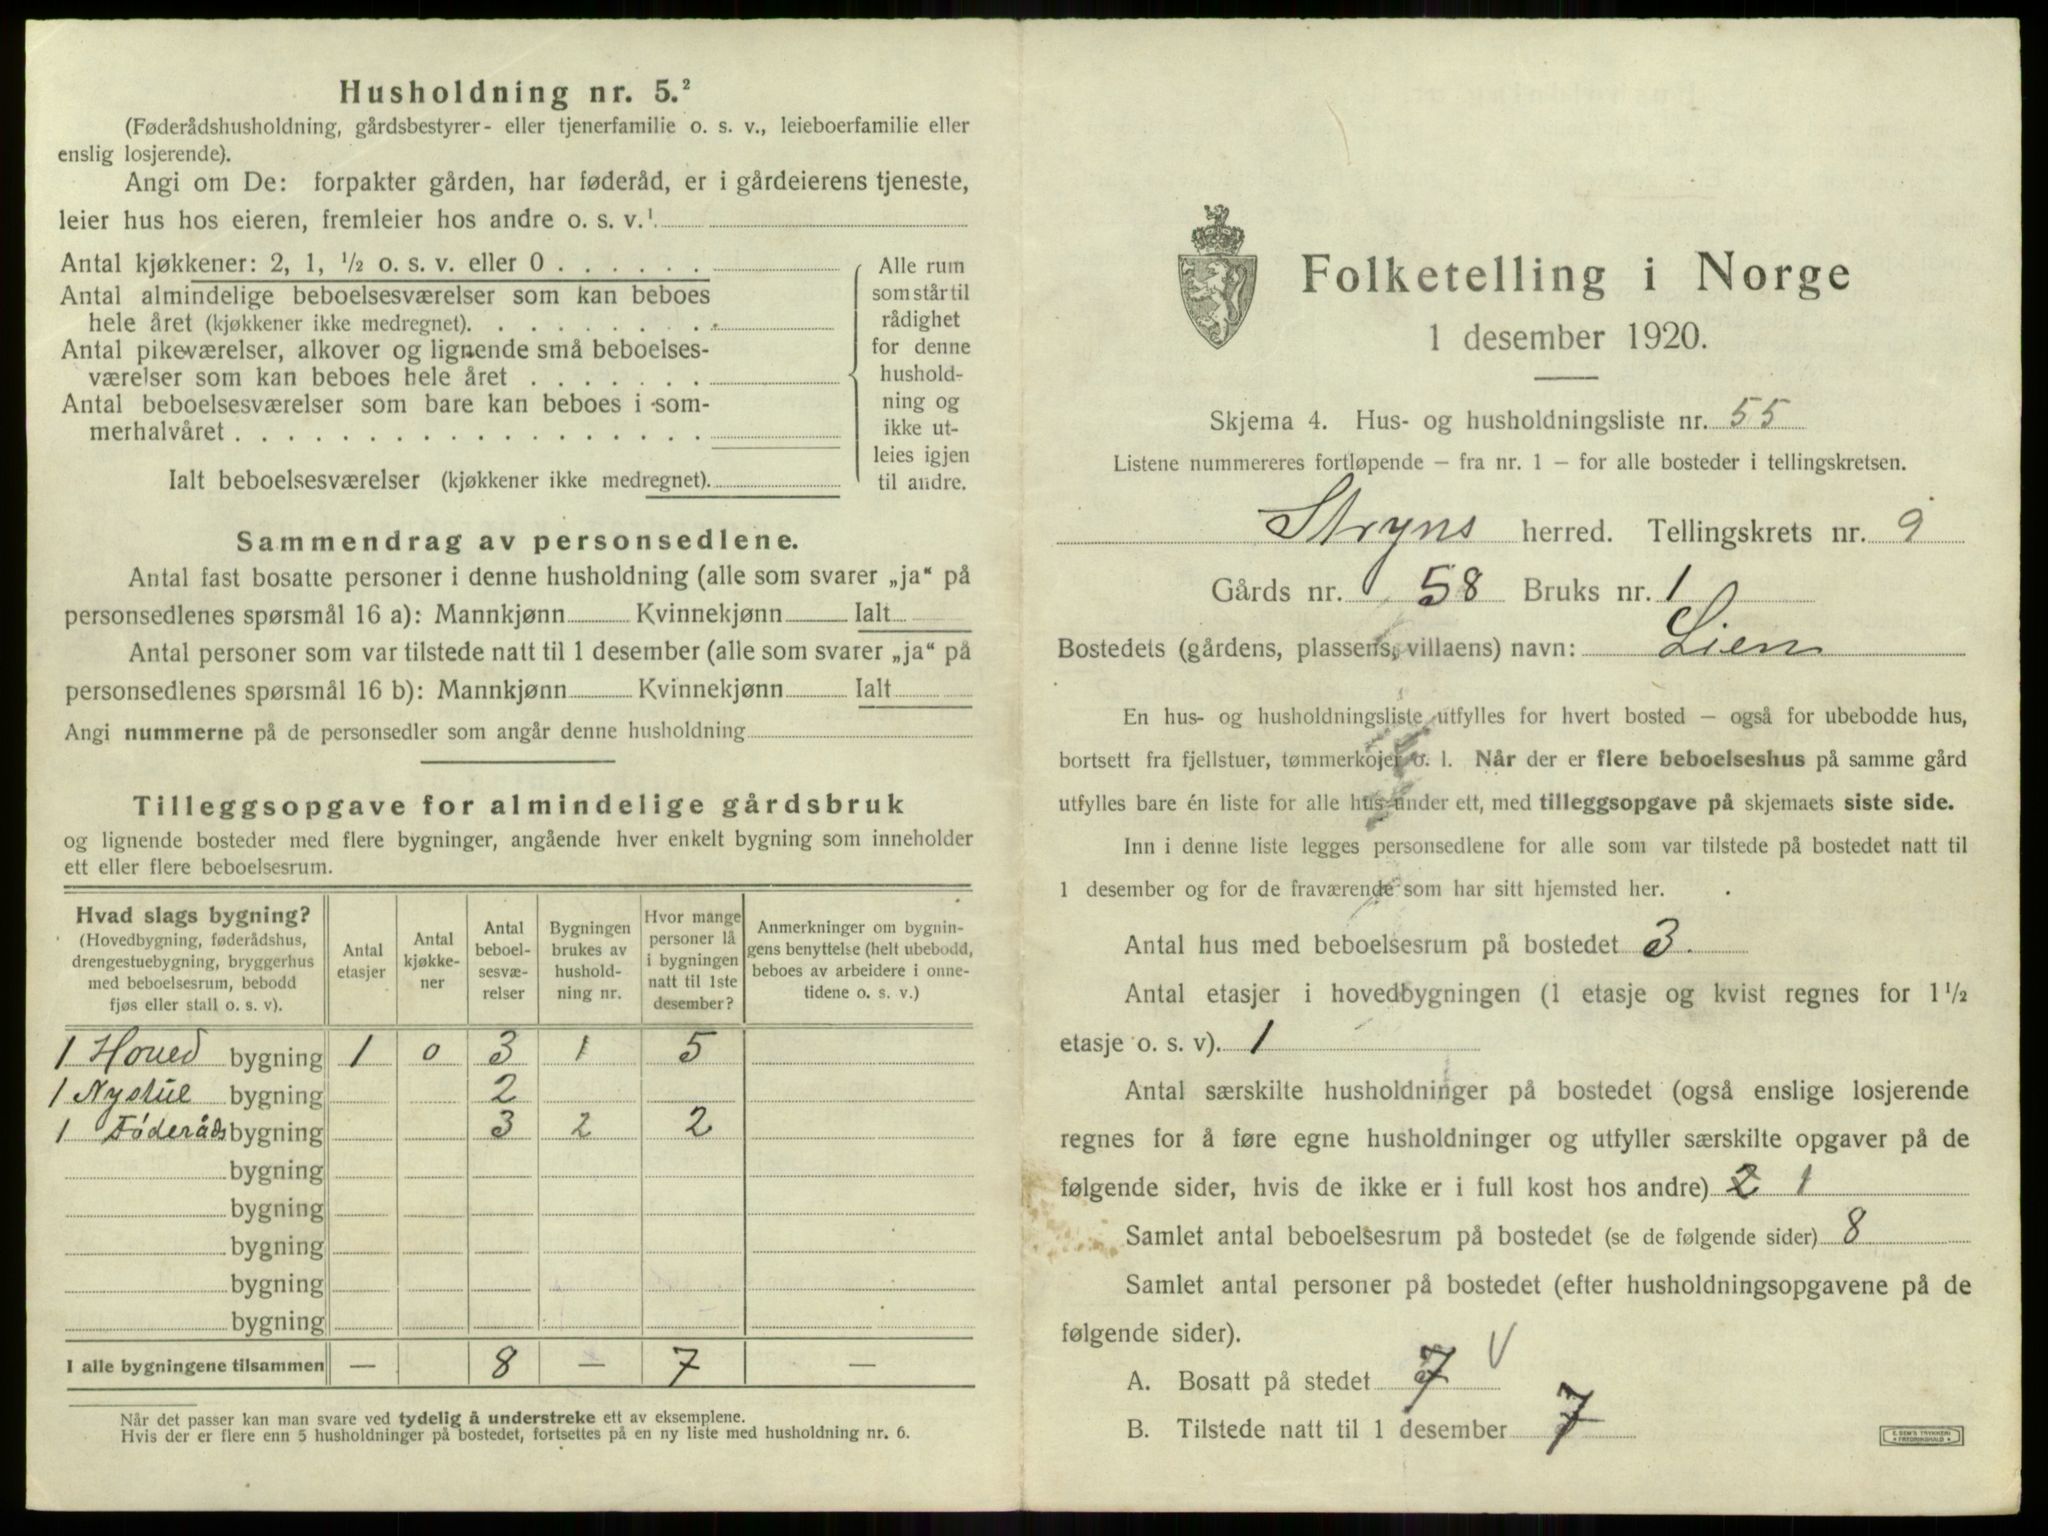 Husholdning nr. 5.²
(Føderådshusholdning, gårdsbestyrer- eller tjenerfamilie o. s. v., leieboerfamilie eller
enslig losjerende).
Angi om De: forpakter gården, har føderåd, er i gårdeierens tjeneste,
leier hus hos eieren, fremleier hos andre o. s. v.¹
Antal kjøkkener: 2, 1, ½ o. s. v. eller 0 . . . . . .
Antal almindelige beboelsesværelser som kan beboes
hele året (kjøkkener ikke medregnet). . . . . . . . .
Antal pikeværelser, alkover og lignende små beboelses-
værelser som kan beboes hele året . . . . . . .
Antal beboelsesværelser som bare kan beboes i som-
merhalvåret . . . . . . . . . . . . . . . . . .
Ialt beboelsesværelser (kjøkkener ikke medregnet).
Alle rum
som står til
rådighet
for denne
hushold-
ning og
ikke ut-
leies igjen
til andre.
Sammendrag av personsedlene.
Antal fast bosatte personer i denne husholdning (alle som svarer „ja“ på
personsedlenes spørsmål 16 a): Mannkjønn Kvinnekjønn Ialt
Antal personer som var tilstede natt til 1 desember (alle som svarer „ja“ på
personsedlenes spørsmål 16 b): Mannkjønn Kvinnekjønn Ialt
Angi nummerne på de personsedler som angår denne husholdning
Tilleggsopgave for almindelige gårdsbruk
og lignende bosteder med flere bygninger, angående hver enkelt bygning som inneholder
ett eller flere beboelsesrum.
Hvad slags bygning?
(Hovedbygning, føderådshus,
drengestuebygning, bryggerhus
med beboelsesrum, bebodd
fjøs eller stall o. s. v).
Antal
etasjer
Antal
kjøkke-
ner
Antal
beboel-
sesvæ-
relser
Bygningen
brukes av
hushold-
ning nr.
Hvor mange
personer lå
i bygningen
natt til 1ste
desember?
Anmerkninger om bygnin-
gens benyttelse (helt ubebodd,
beboes av arbeidere i onne-
tidene o. s. v.)
1 Hoved bygning 1 0 3 1 5
1 Nystue bygning 2
1 Føderåds bygning 3 2 2
bygning
bygning
bygning
bygning
bygning
I alle bygningene tilsammen — 8 — 7 —
Når det passer kan man svare ved tydelig å understreke ett av eksemplene.
Hvis der er flere enn 5 husholdninger på bostedet, fortsettes på en ny liste med husholdning nr. 6.
Folketelling i Norge
1 desember 1920.
Skjema 4. Hus- og husholdningsliste nr. 55
Listene nummereres fortløpende – fra nr. 1 – for alle bosteder i tellingskretsen.
Stryns herred. Tellingskrets nr. 9
Gårds nr. 58 Bruks nr. 1
Bostedets (gårdens, plassens, villaens) navn: Lien
En hus- og husholdningsliste utfylles for hvert bosted – også for ubebodde hus,
bortsett fra fjellstuer, tømmerkojer o. l. Når der er flere beboelseshus på samme gård
utfylles bare én liste for alle hus under ett, med tilleggsopgave på skjemaets siste side.
Inn i denne liste legges personsedlene for alle som var tilstede på bostedet natt til
1 desember og for de fraværende som har sitt hjemsted her.
Antal hus med beboelsesrum på bostedet 3.
Antal etasjer i hovedbygningen (1 etasje og kvist regnes for 1½
etasje o. s. v). 1
Antal særskilte husholdninger på bostedet (også enslige losjerende
regnes for å føre egne husholdninger og utfyller særskilte opgaver på de
følgende sider, hvis de ikke er i full kost hos andre) 2 1
Samlet antal beboelsesrum på bostedet (se de følgende sider) 8
Samlet antal personer på bostedet (efter husholdningsopgavene på de
følgende sider).
A. Bosatt på stedet 7 V
B. Tilstede natt til 1 desember 7
E. SEM'S TRYKKERI
* FREDRIKSHALD *